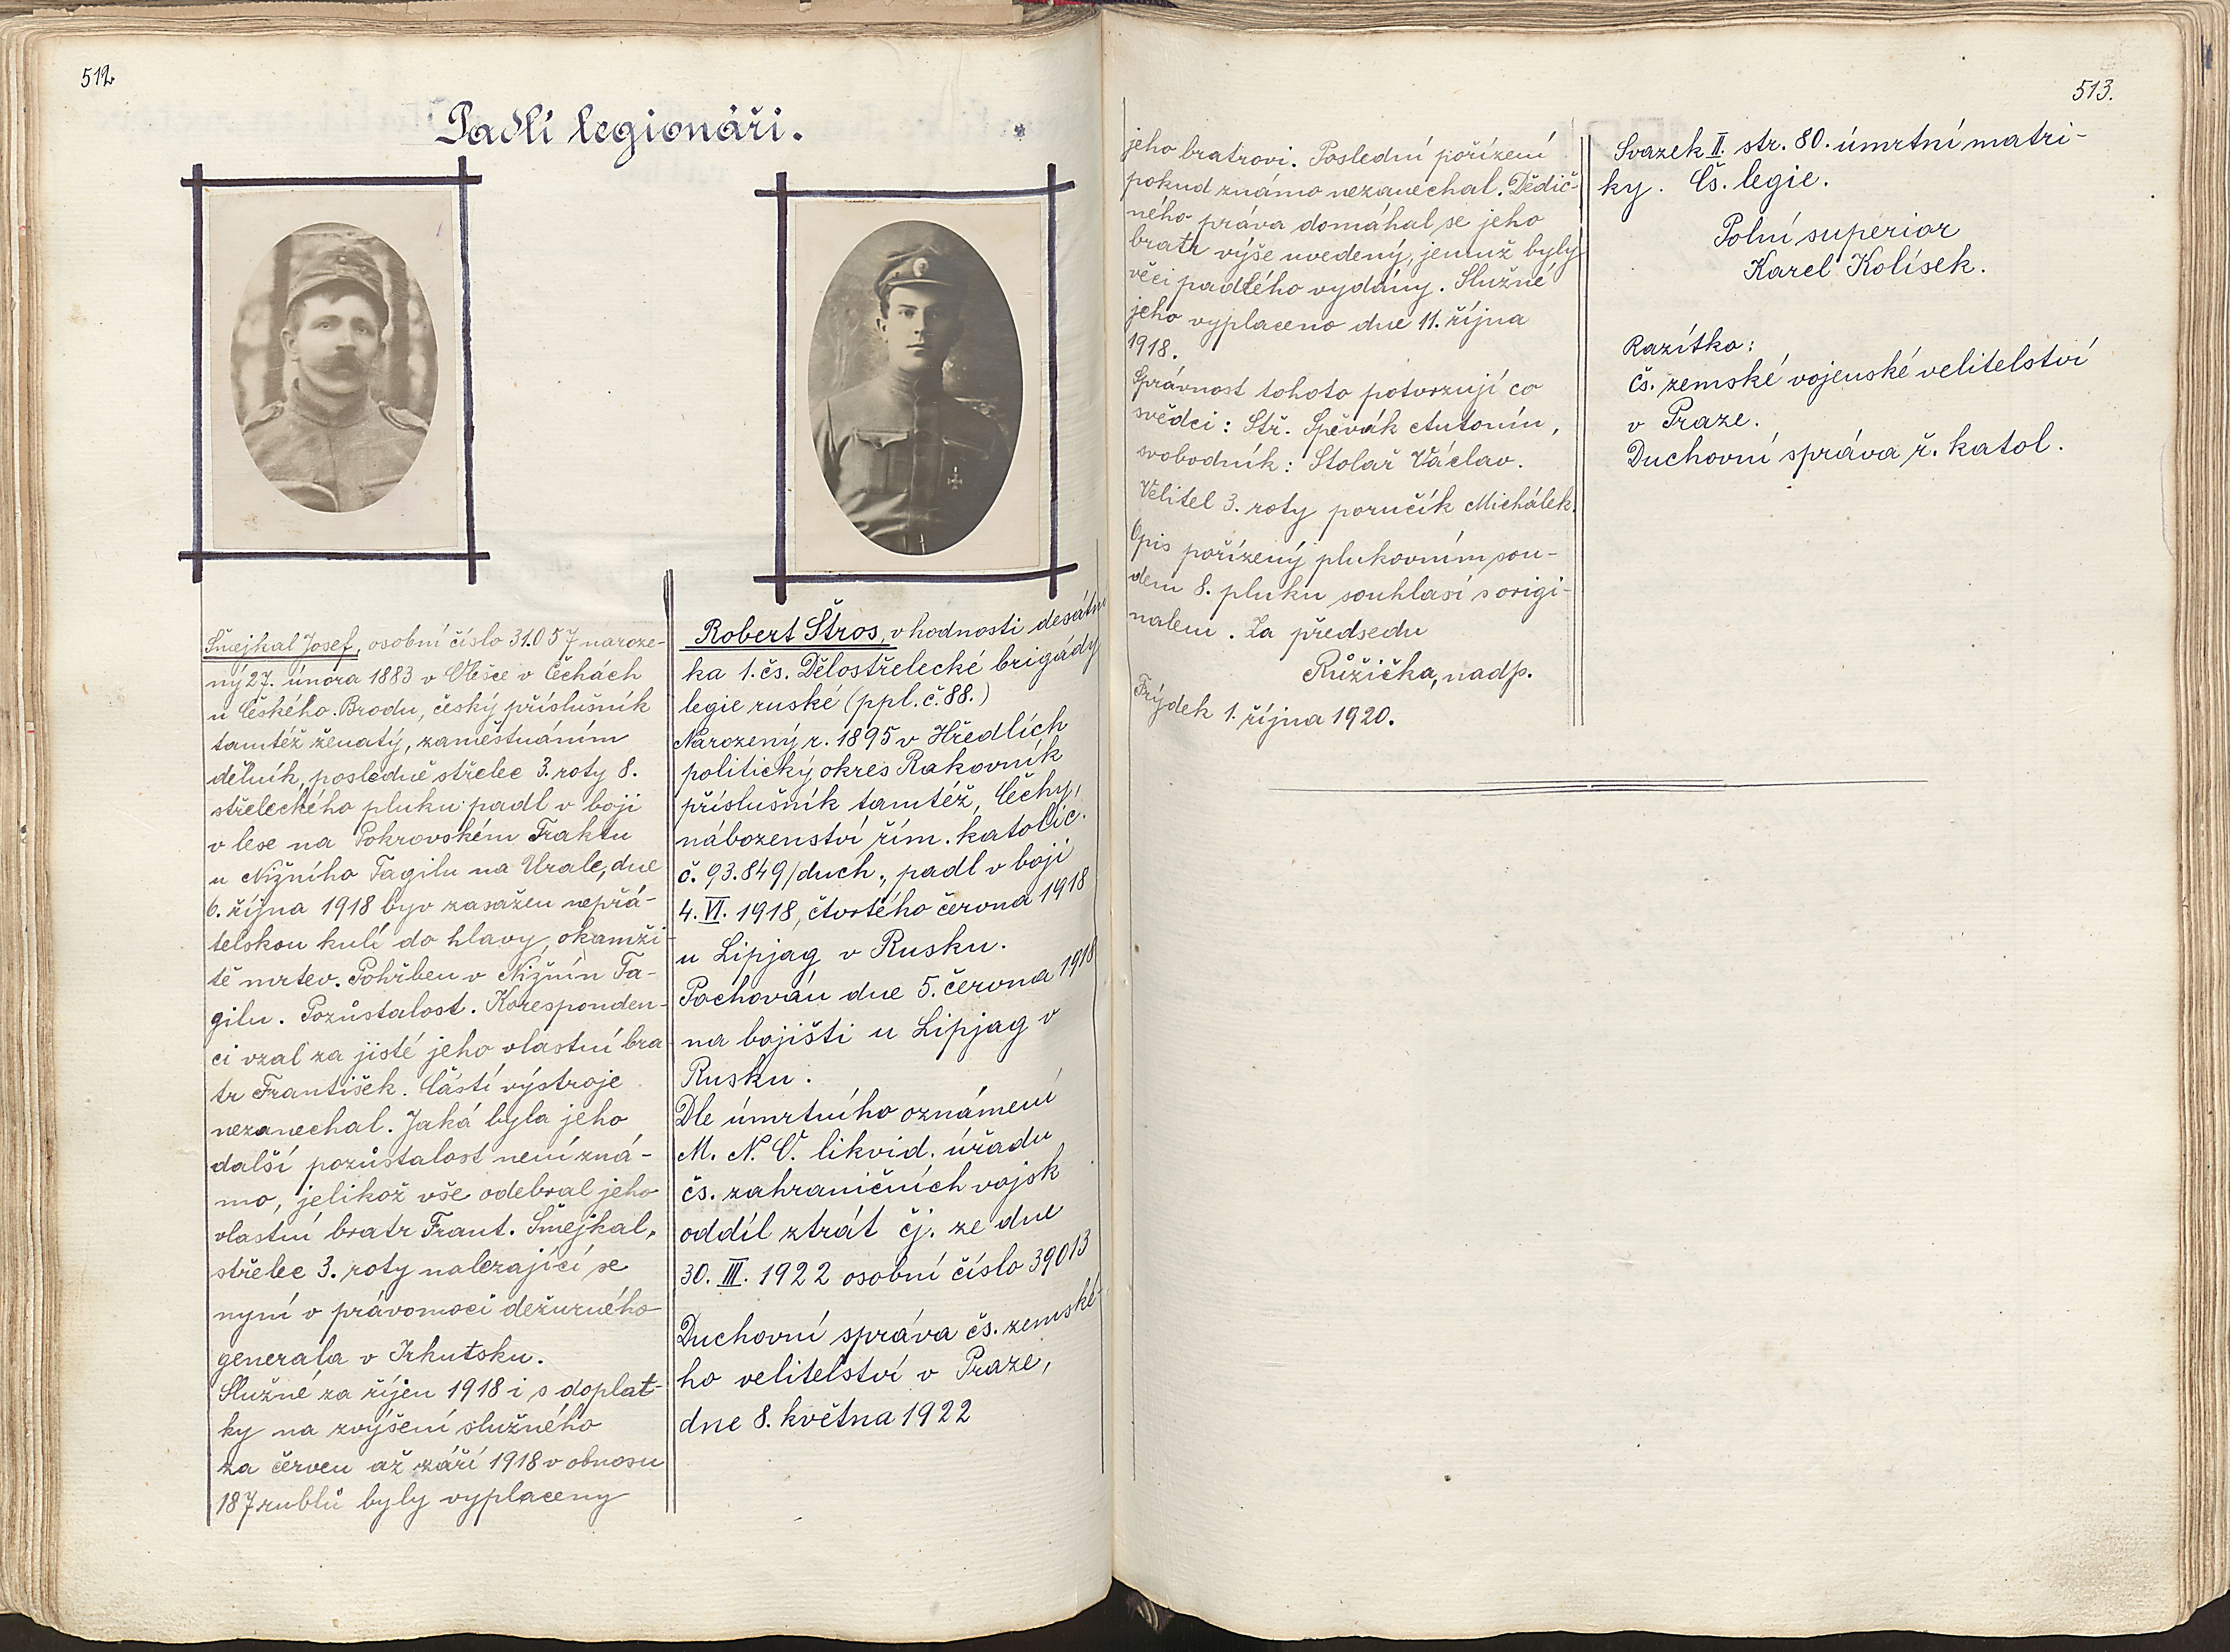 512.
Padlí legionáři.
Šmejkal Josef, osobní číslo 31.057 naroze-
ný 27. února 1883 v Olešce v Čechách
u Českého Brodu, český příslušník
tamtéž ženatý, zaměstnáním
dělník, posledně střelec 3. roty 8.
střeleckého pluku padl v boji
v lese na Pokrovském Traktu
u Nižního Tagilu na Urale, dne
6. října 1918 byv zasažen nepřá-
telskou kulí do hlavy, okamži-
tě mrtev. Pohřben v Nižnín Ta-
gilu. Pozůstalost. Koresponden-
ci vzal za jisté jeho vlastní bra
tr František. Částí výstroje
nezanechal. Jaká byla jeho
další pozůstalost není zná-
mo, jelikož vše odebral jeho
vlastní bratr Frant. Šmejkal,
střelec 3. roty nalezající se
nyní v právomoci dežurného
generala v Irkutsku.
Služné za říjen 1918 i s doplat-
ky na zvýšení služného
za červen až září 1918 v obnosu
187 rublů byly vyplaceny
Robert Štros, v hodnosti desátní
ka 1. čs. Dělostřelecké brigády
legie ruské (ppl. č. 88.)
Narozený r. 1895 v Hředlích
politický okres Rakovník
příslušník tamtéž, Čechy,
náboženství řím. katolic.
č. 93.849/duch., padl v boji
4. VI. 1918, čtvrtého června 1918
u Lipjag v Rusku.
Pochován dne 5. června 1918
na bojišti u Lipjag v
Rusku.
Dle úmrtního oznámení
M. N. O. likvid. úřadu
čs. zahraničních vojsk
oddíl ztrát čj. ze dne
30. III. 1922 osobní číslo 39013
Duchovní správa čs. zemské-
ho velitelství v Praze,
dne 8. května 1922
513.
jeho bratrovi. Poslední pořízení
pokud známo nezanechal. Dědič-
ného práva domáhal se jeho
bratr výše uvedený, jemuž byly
věci padlého vydány. Služné
jeho vyplaceno dne 11. října
1918.
Správnost tohoto potvrzují co
svědci: Stř. Spěvák Antonín,
svobodník: Stolař Václav.
Velitel 3. roty poručík Michálek.
Opis pořízený plukovním sou-
dem 8. pluku souhlasí s origi-
nalem. Za předsedu
Růžička, nadp.
Frýdek 1. října 1920.
Svazek II. str. 80. úmrtní matri-
ky. Čs. legie.
Polní superior
Karel Kolísek.
Razítko:
čs. zemské vojenské velitelství
v Praze.
Duchovní správa ř. katol.